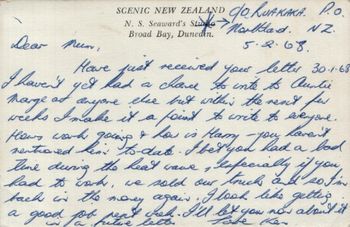 SCENIC NEW ZEALAND
C/O. RUAKAKA. P.O.
N. S. Seaward's Studio
Northland. NZ.
Broad Bay, Dunedin.
5-2-68.
Dear Mum,
Have just received your letter 30-1-68
I haven't yet had a chance to write to Auntie
Marge or anyone else but within the next few
weeks I make it a point to write to everyone.
Hows work going & how is Harry - you haven't
mentioned him to-date. I bet you had a bad
time during the heat wave, especially if you
had to work, we sold our truck and so I'm
back in the money again. I look like getting
a good job next week. I'll let you now about it
in a future letter Ken